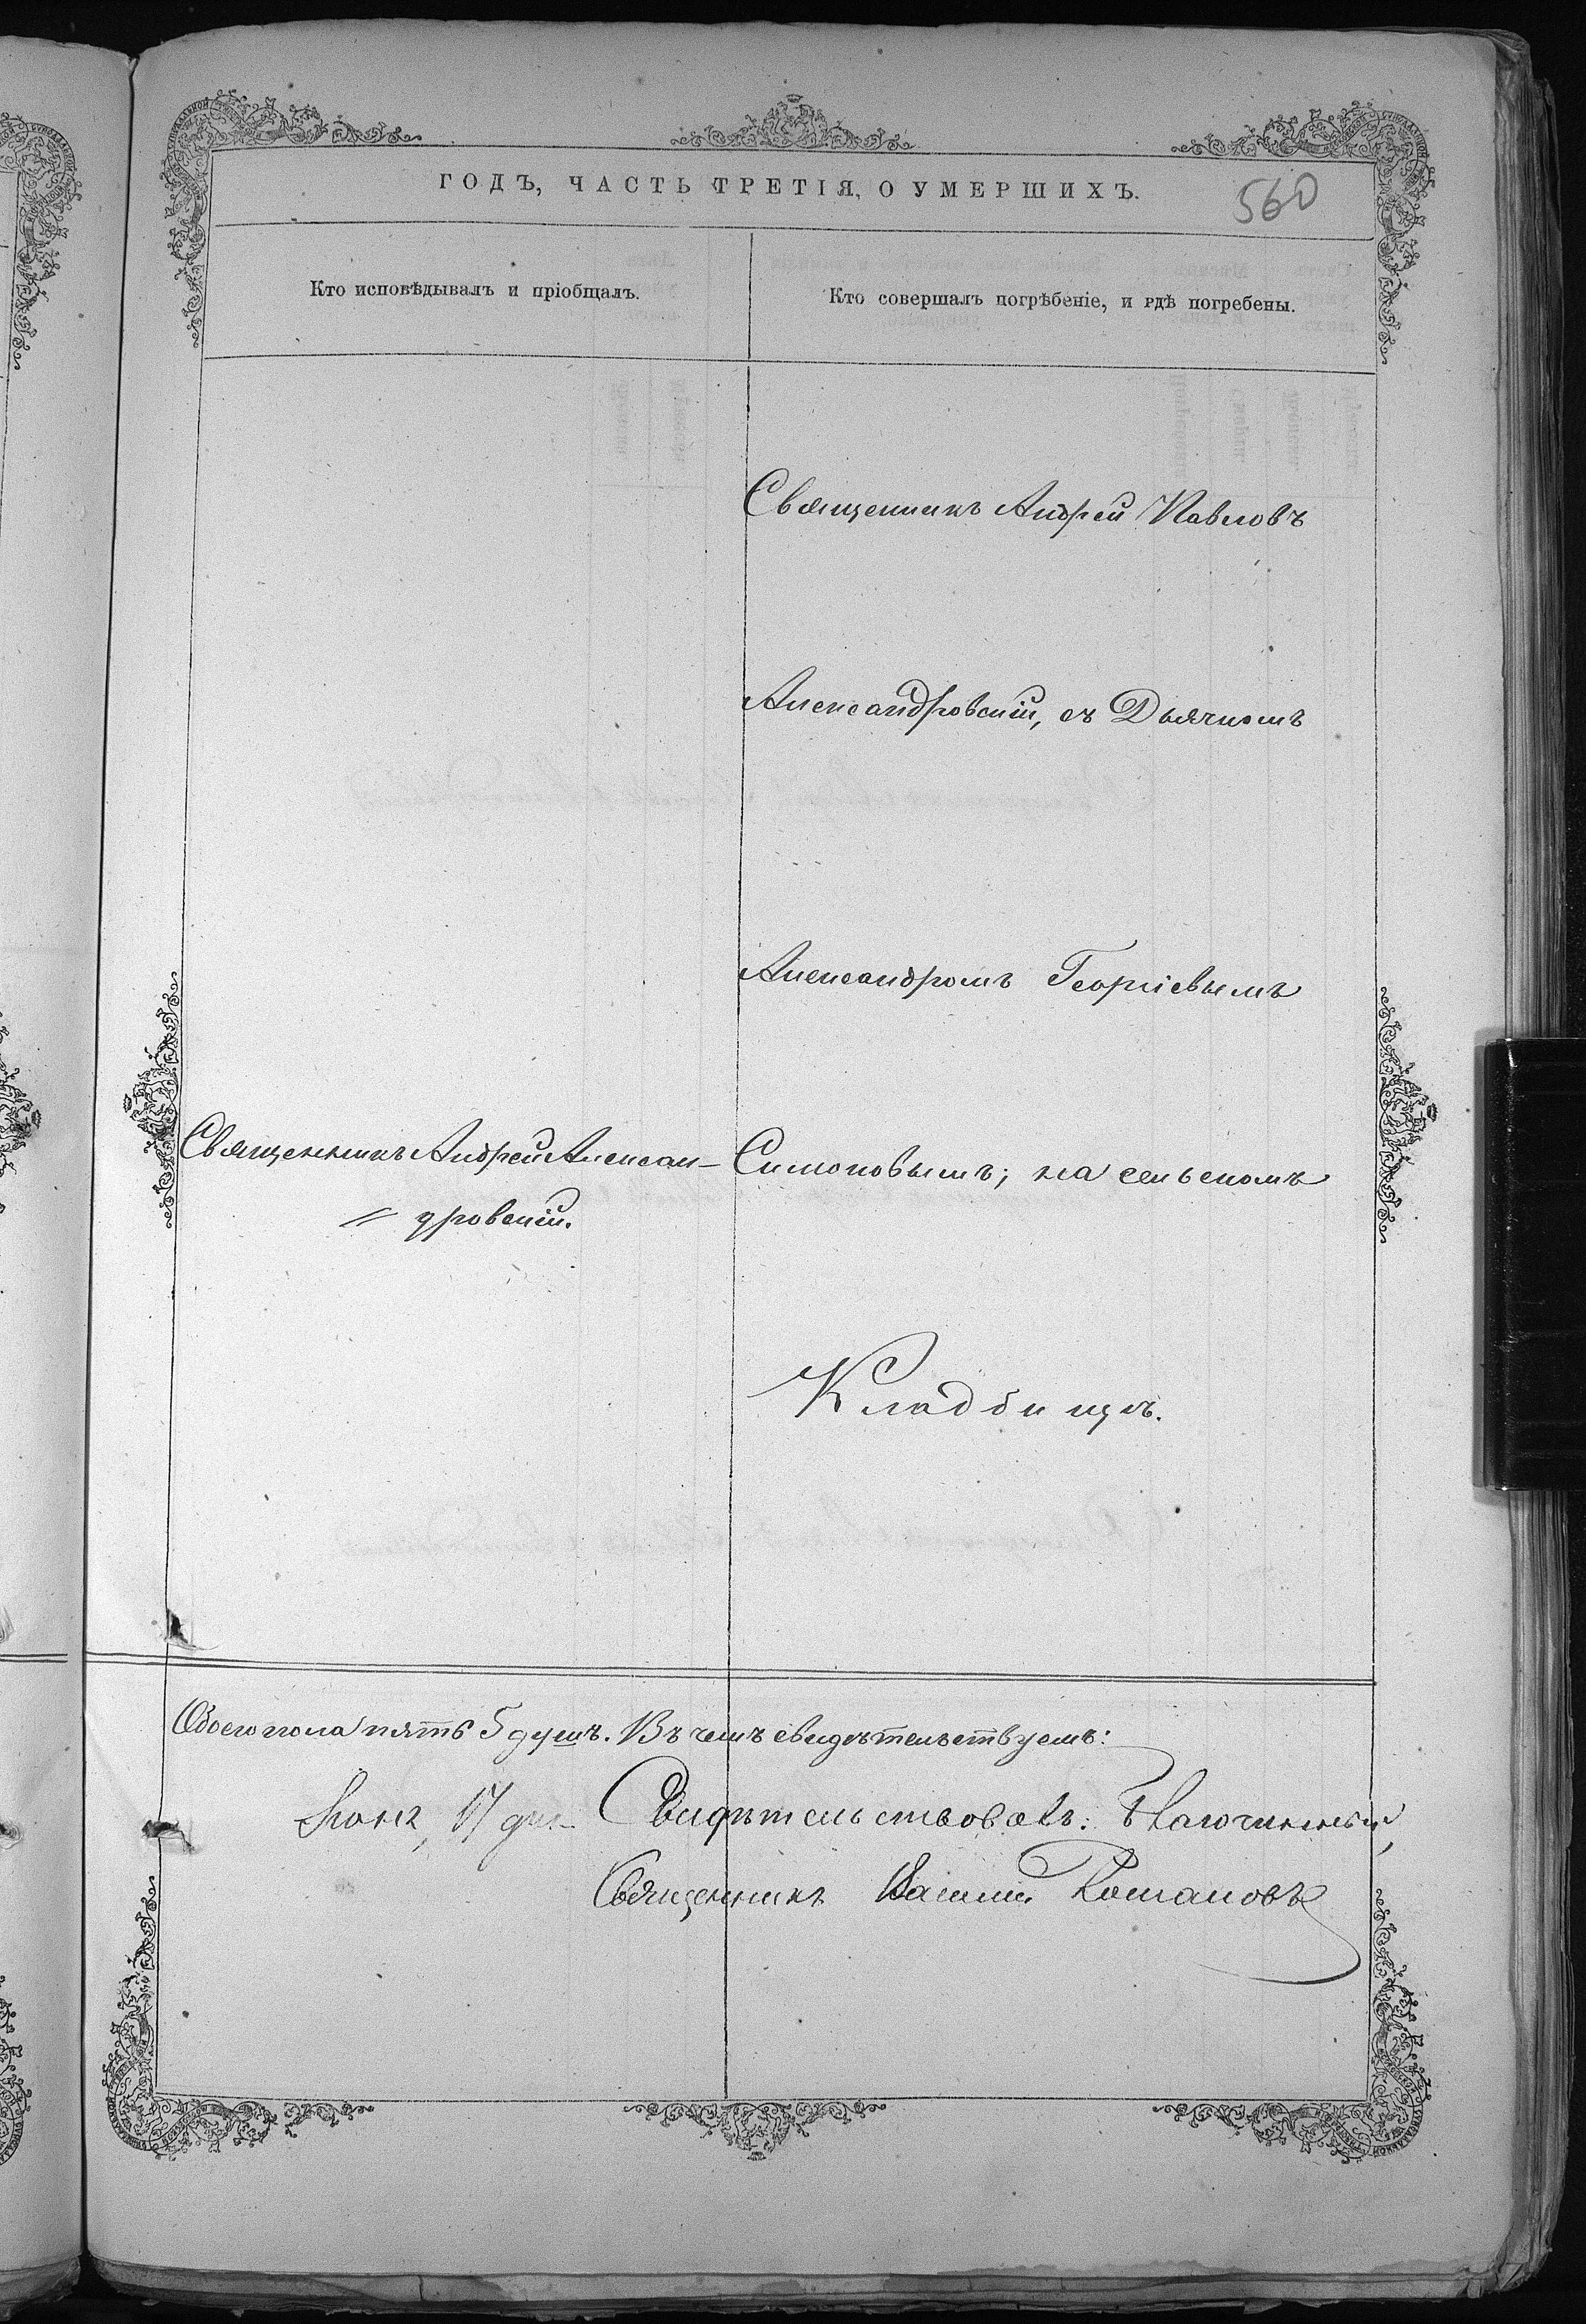 ГОДЪ, ЧАСТЬ ТРЕТІЯ, О УМЕРШИХЪ.
560
Кто исповѣдывалъ и пріобщалъ.
Кто совершалъ погрѣбеніе, и гдѣ погребены.
Священникъ Андрей Павловъ
Александровскій, съ Дьячкомъ
Александромъ Георгіевымъ
Священникъ Андрей Алексан-
= дровскій.
Симоновымъ; на сельскомъ
Кладбищѣ.
Обоего пола пять 5 душъ. Въ чемъ свидѣтельствуемъ:
17 Свидѣтельствовалъ: Благочинный,
Священникъ Василій Романовъ